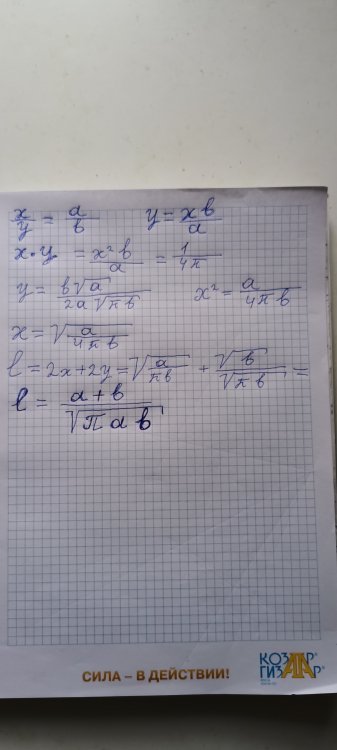 x/y = a/b    y = xb/a
x·y = x²b/a = 1/4π
y = b√a/2a√πb    x² = a/4πb
x = √a/4πb
l = 2x+2y = √a/πb + √b/√πb =
l = a+b/√πab
СИЛА – В ДЕЙСТВИИ!